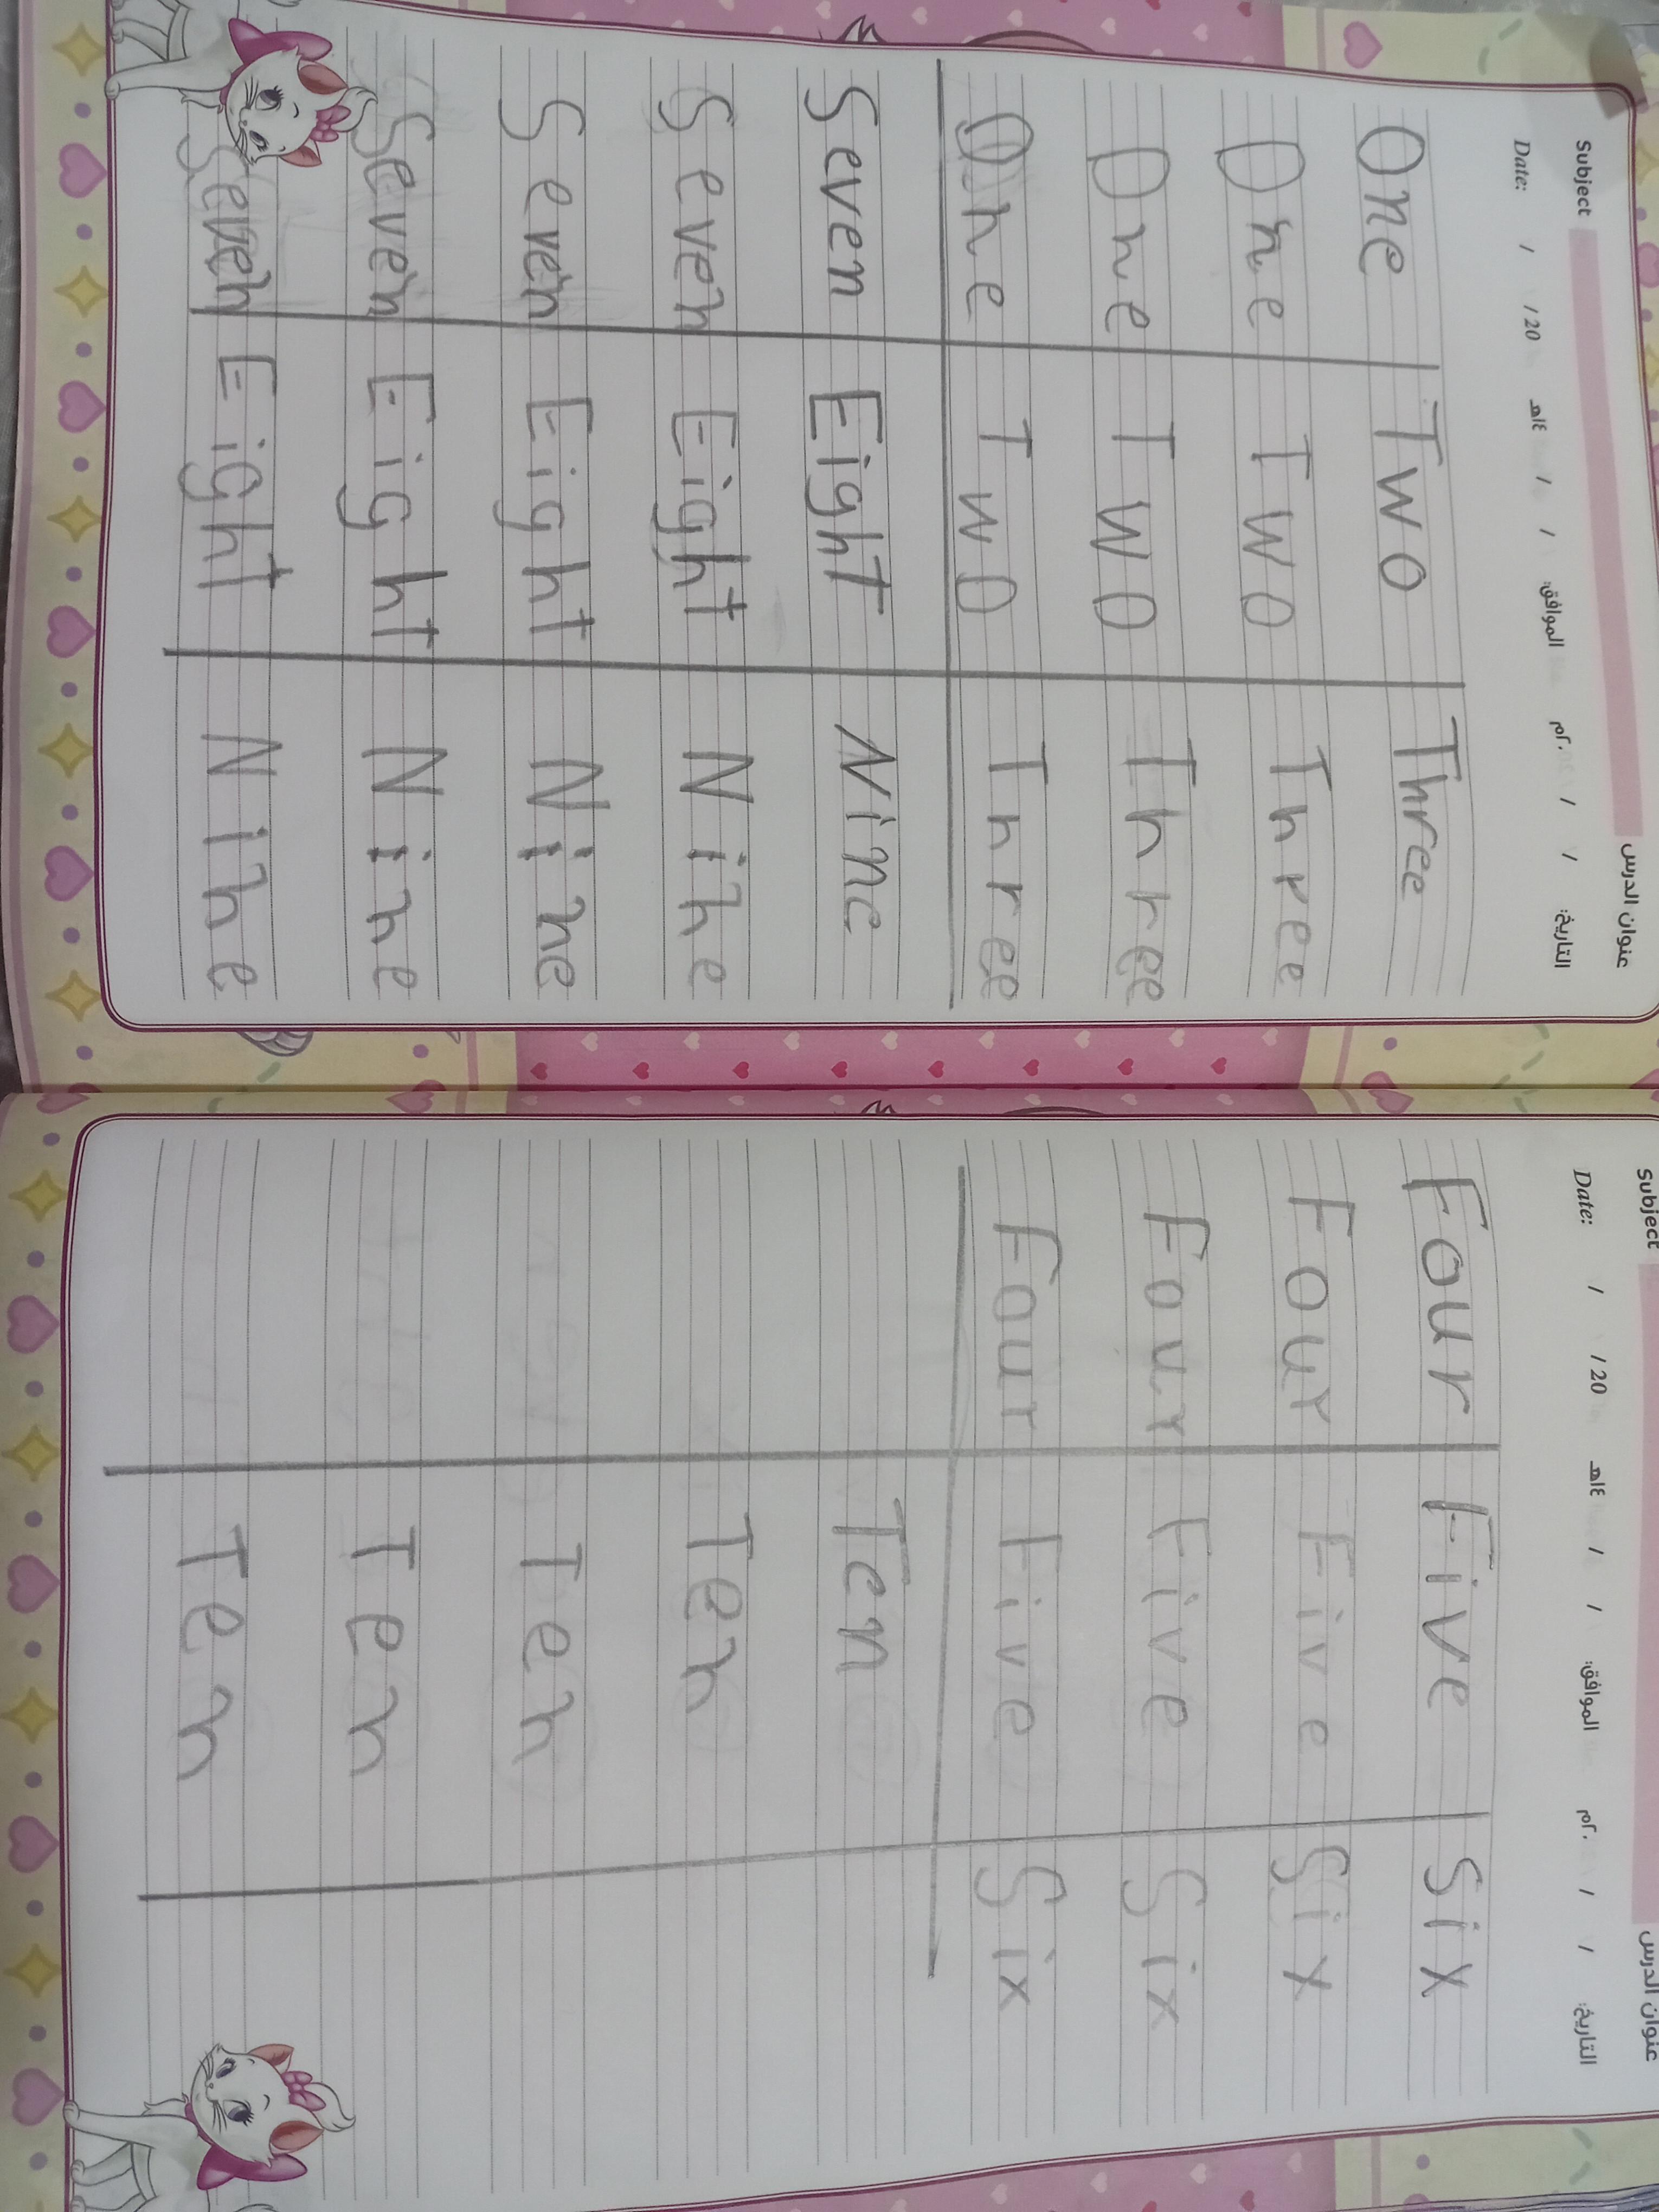 Subject عنوان الدرس
Date: / / 20 ١٤هـ / / الموافق: ٢٠م / / التاريخ:
One Two Three
One Two Three
One Two Three
One Two Three
Seven Eight Nine
Seven Eight Nine
Seven Eight Nine
Seven Eight Nine
Seven Eight Nine
Subject عنوان الدرس
Date: / / 20 ١٤هـ / / الموافق: ٢٠م / / التاريخ:
Four Five Six
Four Five Six
Four Five Six
Four Five Six
Ten
Ten
Ten
Ten
Ten